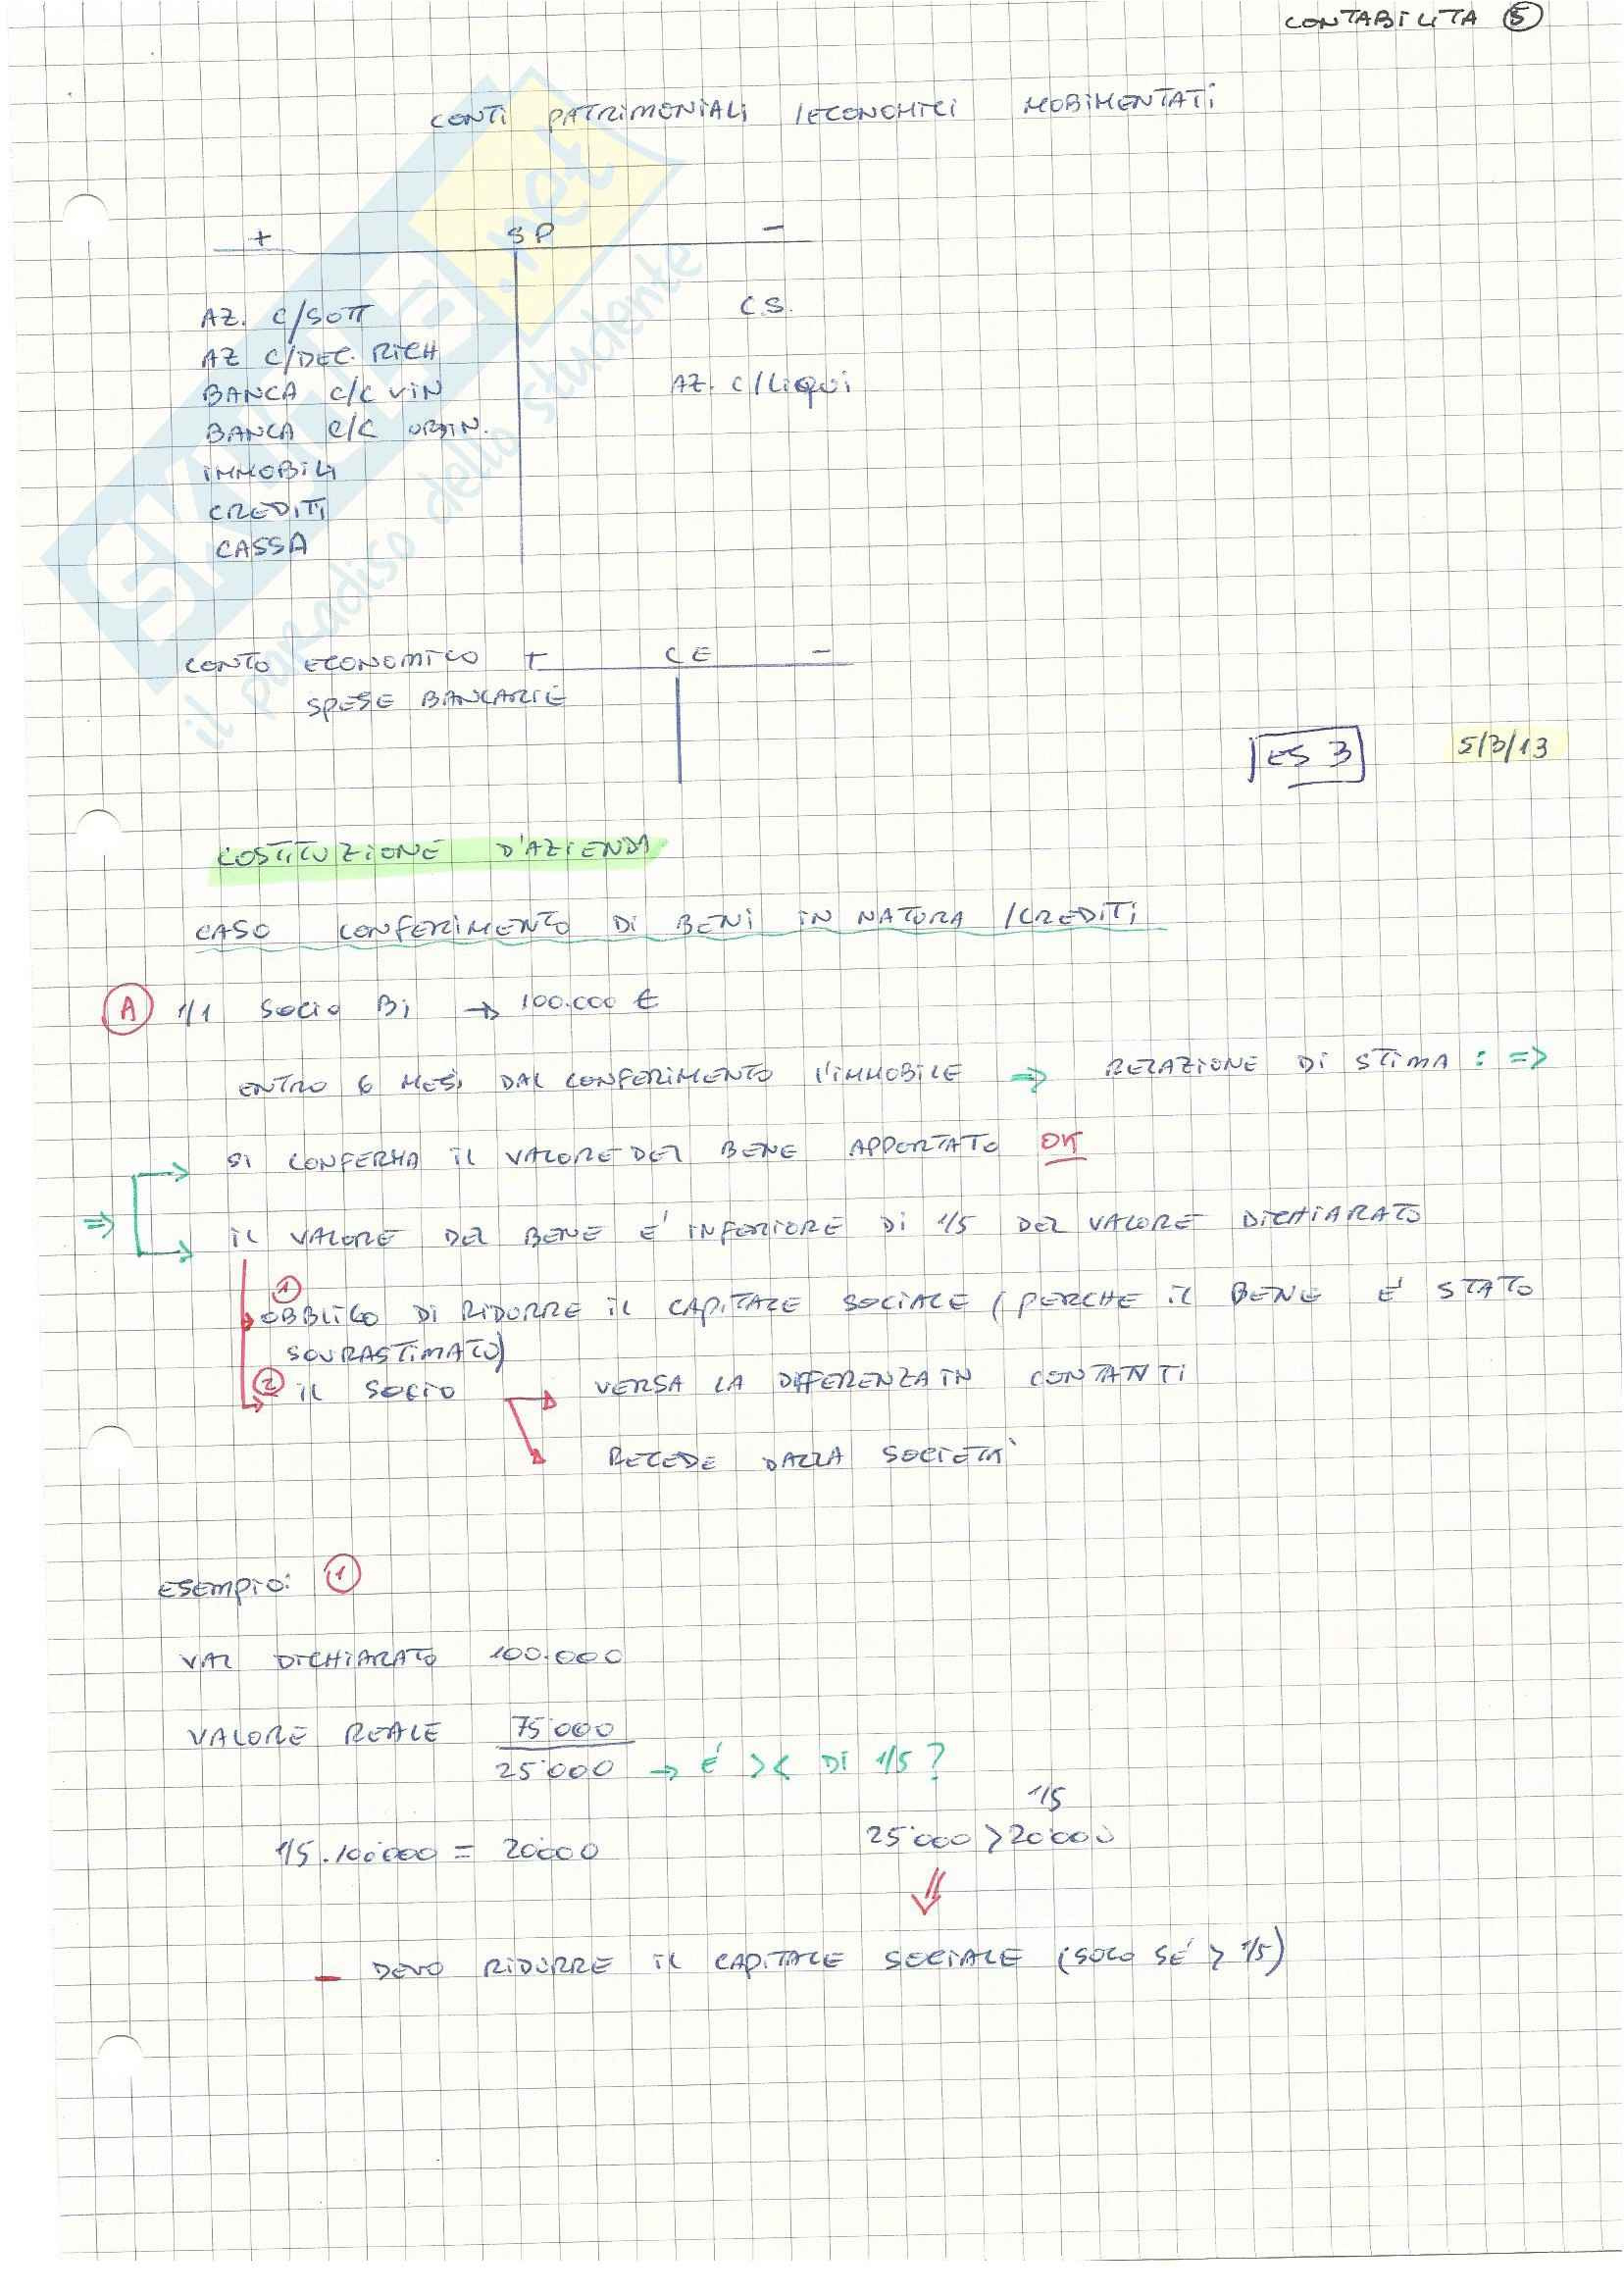 CONTABILITA 5
CONTI PATRIMONIALI /ECONOMICI MOBIMENTATI
+ SP -
AZ. C/SOTT C.S.
AZ C/DEC. RICH
BANCA C/C VIN AZ. C/LIQUI
BANCA C/C ORDIN.
IMMOBILI
CREDITI
CASSA
CONTO ECONOMICO + CE -
SPESE BANCARIE
ES 3 5/3/13
COSTITUZIONE D'AZIENDA
CASO CONFERIMENTO DI BENI IN NATURA /CREDITI
A 1/1 SOCIO Bi → 100.000 €
ENTRO 6 MESI DAL CONFERIMENTO L'IMMOBILE ⇒ RELAZIONE DI STIMA : ⇒
SI CONFERMA IL VALORE DEL BENE APPORTATO OK
⇒ IL VALORE DEL BENE E' INFERIORE DI 1/5 DEL VALORE DICHIARATO
1 OBBLIGO DI RIDURRE IL CAPITALE SOCIALE (PERCHE IL BENE E' STATO
SOVRASTIMATO)
2 IL SOCIO VERSA LA DIFFERENZA IN CONTANTI
RECEDE DALLA SOCIETA'
ESEMPIO: 1
VAL DICHIARATO 100.000
VALORE REALE 75'000
25'000 → É >< DI 1/5?
1/5
1/5 . 100'000 = 20'000 25'000 > 20'000
- DEVO RIDURRE IL CAPITALE SOCIALE (SOLO SÉ > 1/5)
SKUOLA.net
il paradiso dello studente